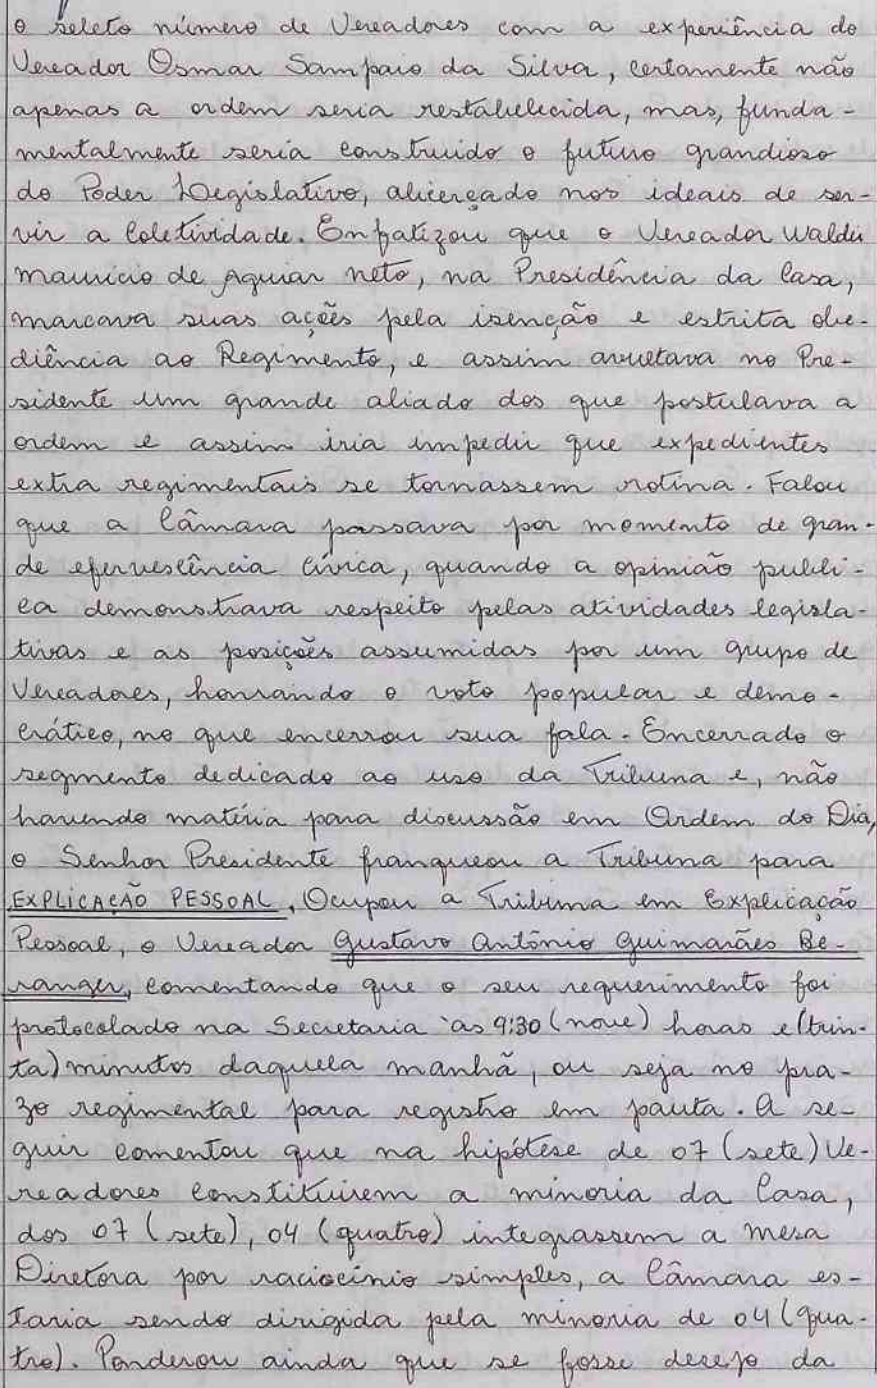 o seleto número de Vereadores com a experiência do
Vereador Osmar Sampaio da Silva, certamente não
apenas a ordem seria restabelecida, mas, funda-
mentalmente seria construido o futuro grandioso
do Poder Legislativo, alicerçado nos ideais de ser-
vir a Coletividade. Enfatizou que o Vereador Waldir
Maurício de Aguiar Neto, na Presidência da Casa,
marcava suas ações pela isenção e estrita obe-
diência ao Regimento, e assim arrietava no Pre-
sidente um grande aliado dos que postulava a
ordem e assim iria impedir que expedientes
extra regimentais se tornassem rotina. Falou
que a Câmara passava por momento de gran-
de efervescência cívica, quando a opinião publi-
ca demonstrava respeito pelas atividades legisla-
tivas e as posições assumidas por um grupo de
Vereadores, honrando o voto popular e demo-
crático, no que encerrou sua fala. Encerrado o
segmento dedicado ao uso da Tribuna e, não
havendo matéria para discussão em Ordem do Dia,
o Senhor Presidente franqueou a Tribuna para
EXPLICAÇÃO PESSOAL. Ocupou a Tribuna em Explicação
Pessoal, o Vereador Gustavo Antônio Guimarães Be-
ranger, comentando que o seu requerimento foi
protocolado na Secretaria às 9:30 (nove) horas e (trin-
ta) minutos daquela manhã, ou seja no pra-
zo regimental para registro em pauta. A se-
guir comentou que na hipótese de 07 (sete) Ve-
readores constituirem a minoria da Casa,
dos 07 (sete), 04 (quatro) integrassem a Mesa
Diretora por raciocínio simples, a Câmara es-
taria sendo dirigida pela minoria de 04 (qua-
tro). Ponderou ainda que se fosse desejo da